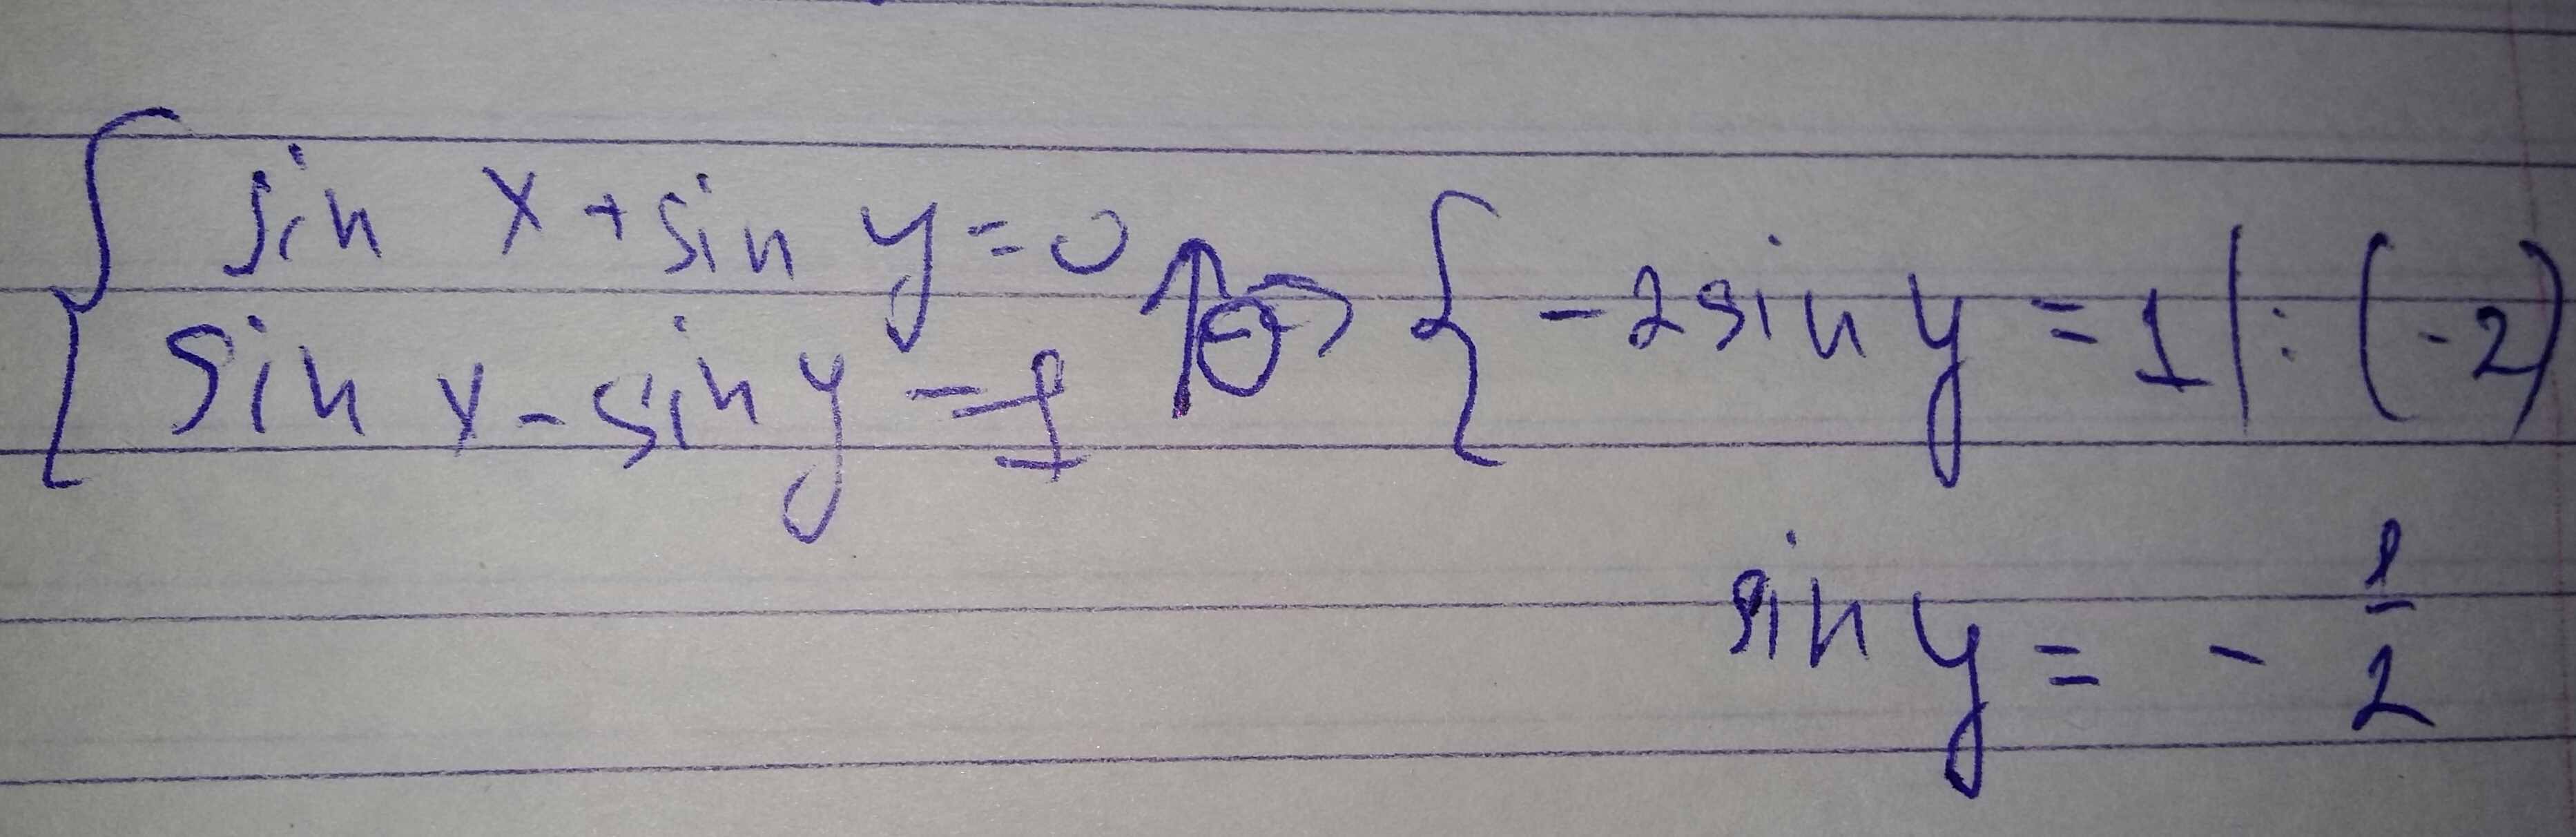 { sin x + sin y = 0
sin x - sin y = 1 ↑⊖ ⇒ { -2 sin y = 1 | : (-2)
sin y = - 1/2